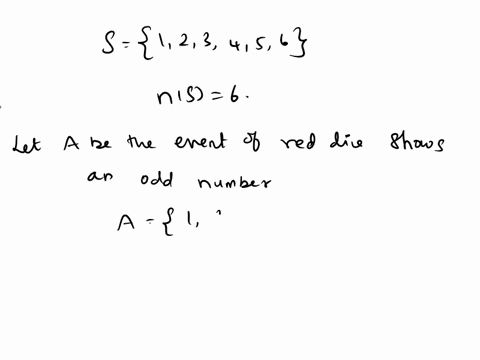 S = {1, 2, 3, 4, 5, 6}
n(S) = 6.
Let A be the event of red die shows
an odd number
A = { 1,